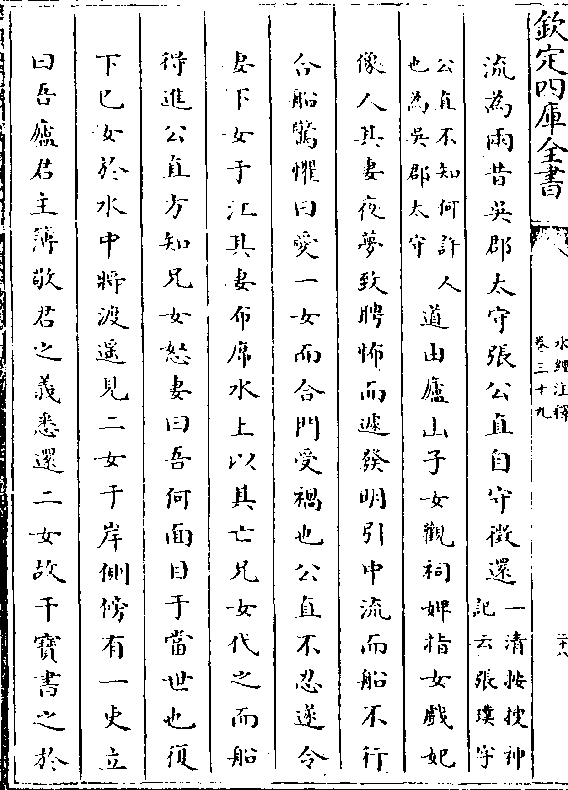 欽定四庫全書
水經注釋
卷三十九
二十八
流為雨昔吳郡太守張公直自守徵還
一清按搜神
記云張璞字
公直不知何許人
也為吳郡太守
道由廬山子女觀祠婢指女戲妃
像人其妻夜夢致聘怖而遽發明引中流而船不行
合船驚懼曰愛一女而合門受禍也公直不忍遂令
妻下女于江其妻布席水上以其亡兄女代之而船
得進公直方知兄女怒妻曰吾何面目于當世也復
下已女於水中將渡遥見二女于岸側傍有一吏立
曰吾廬君主簿敬君之義悉還二女故干寶書之於